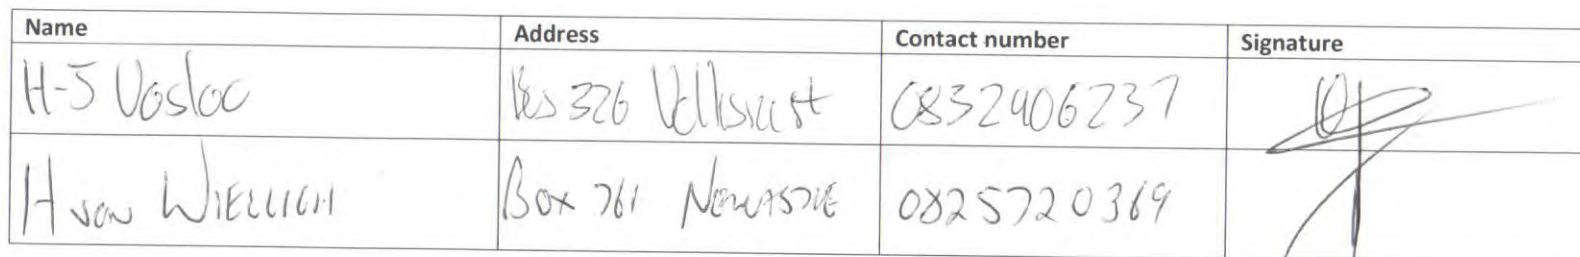 Name Address Contact number Signature
H-J Vosloo Bus 326 Volksrust 0832406237
H von WIELLIGH Box 761 NEWCASTLE 0825720369